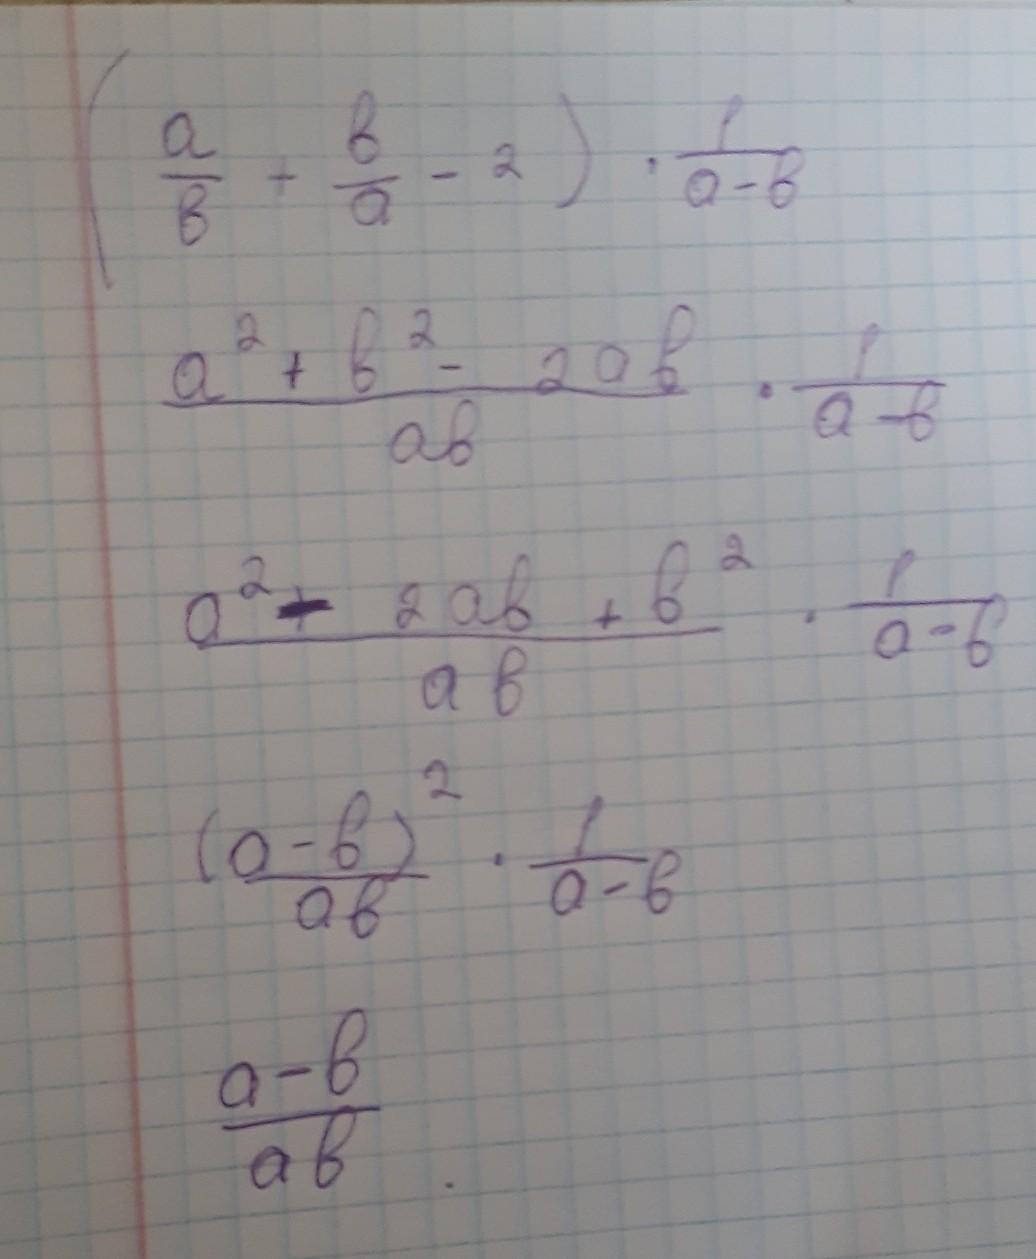 (a/b + b/a - 2) · 1/(a-b)
(a² + b² - 2ab)/(ab) · 1/(a-b)
(a² - 2ab + b²)/(ab) · 1/(a-b)
(a-b)²/(ab) · 1/(a-b)
(a-b)/(ab).